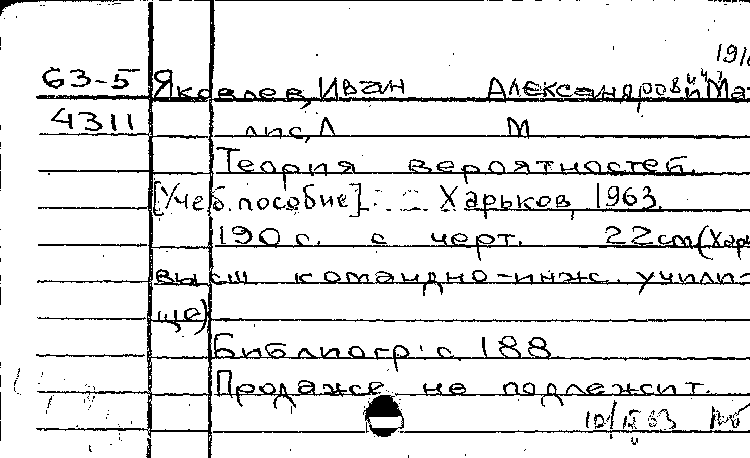 63-5 Яковлев, Иван Александрович Ма
4311 лис, Л М
Теория вероятностей.
[Учеб. пособие]. Харьков, 1963.
190 с. с черт. 22 см (Харь
высш командно-инж. учили-
ще)
Библиогр: с. 188
Продаже не подлежит.